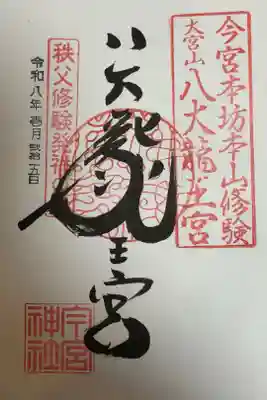 今宮本坊本山修験
大宮山
八大龍王宮
八大龍王宮
秩父修験発祥の
令和八年壱月弐拾五日
今宮
神社